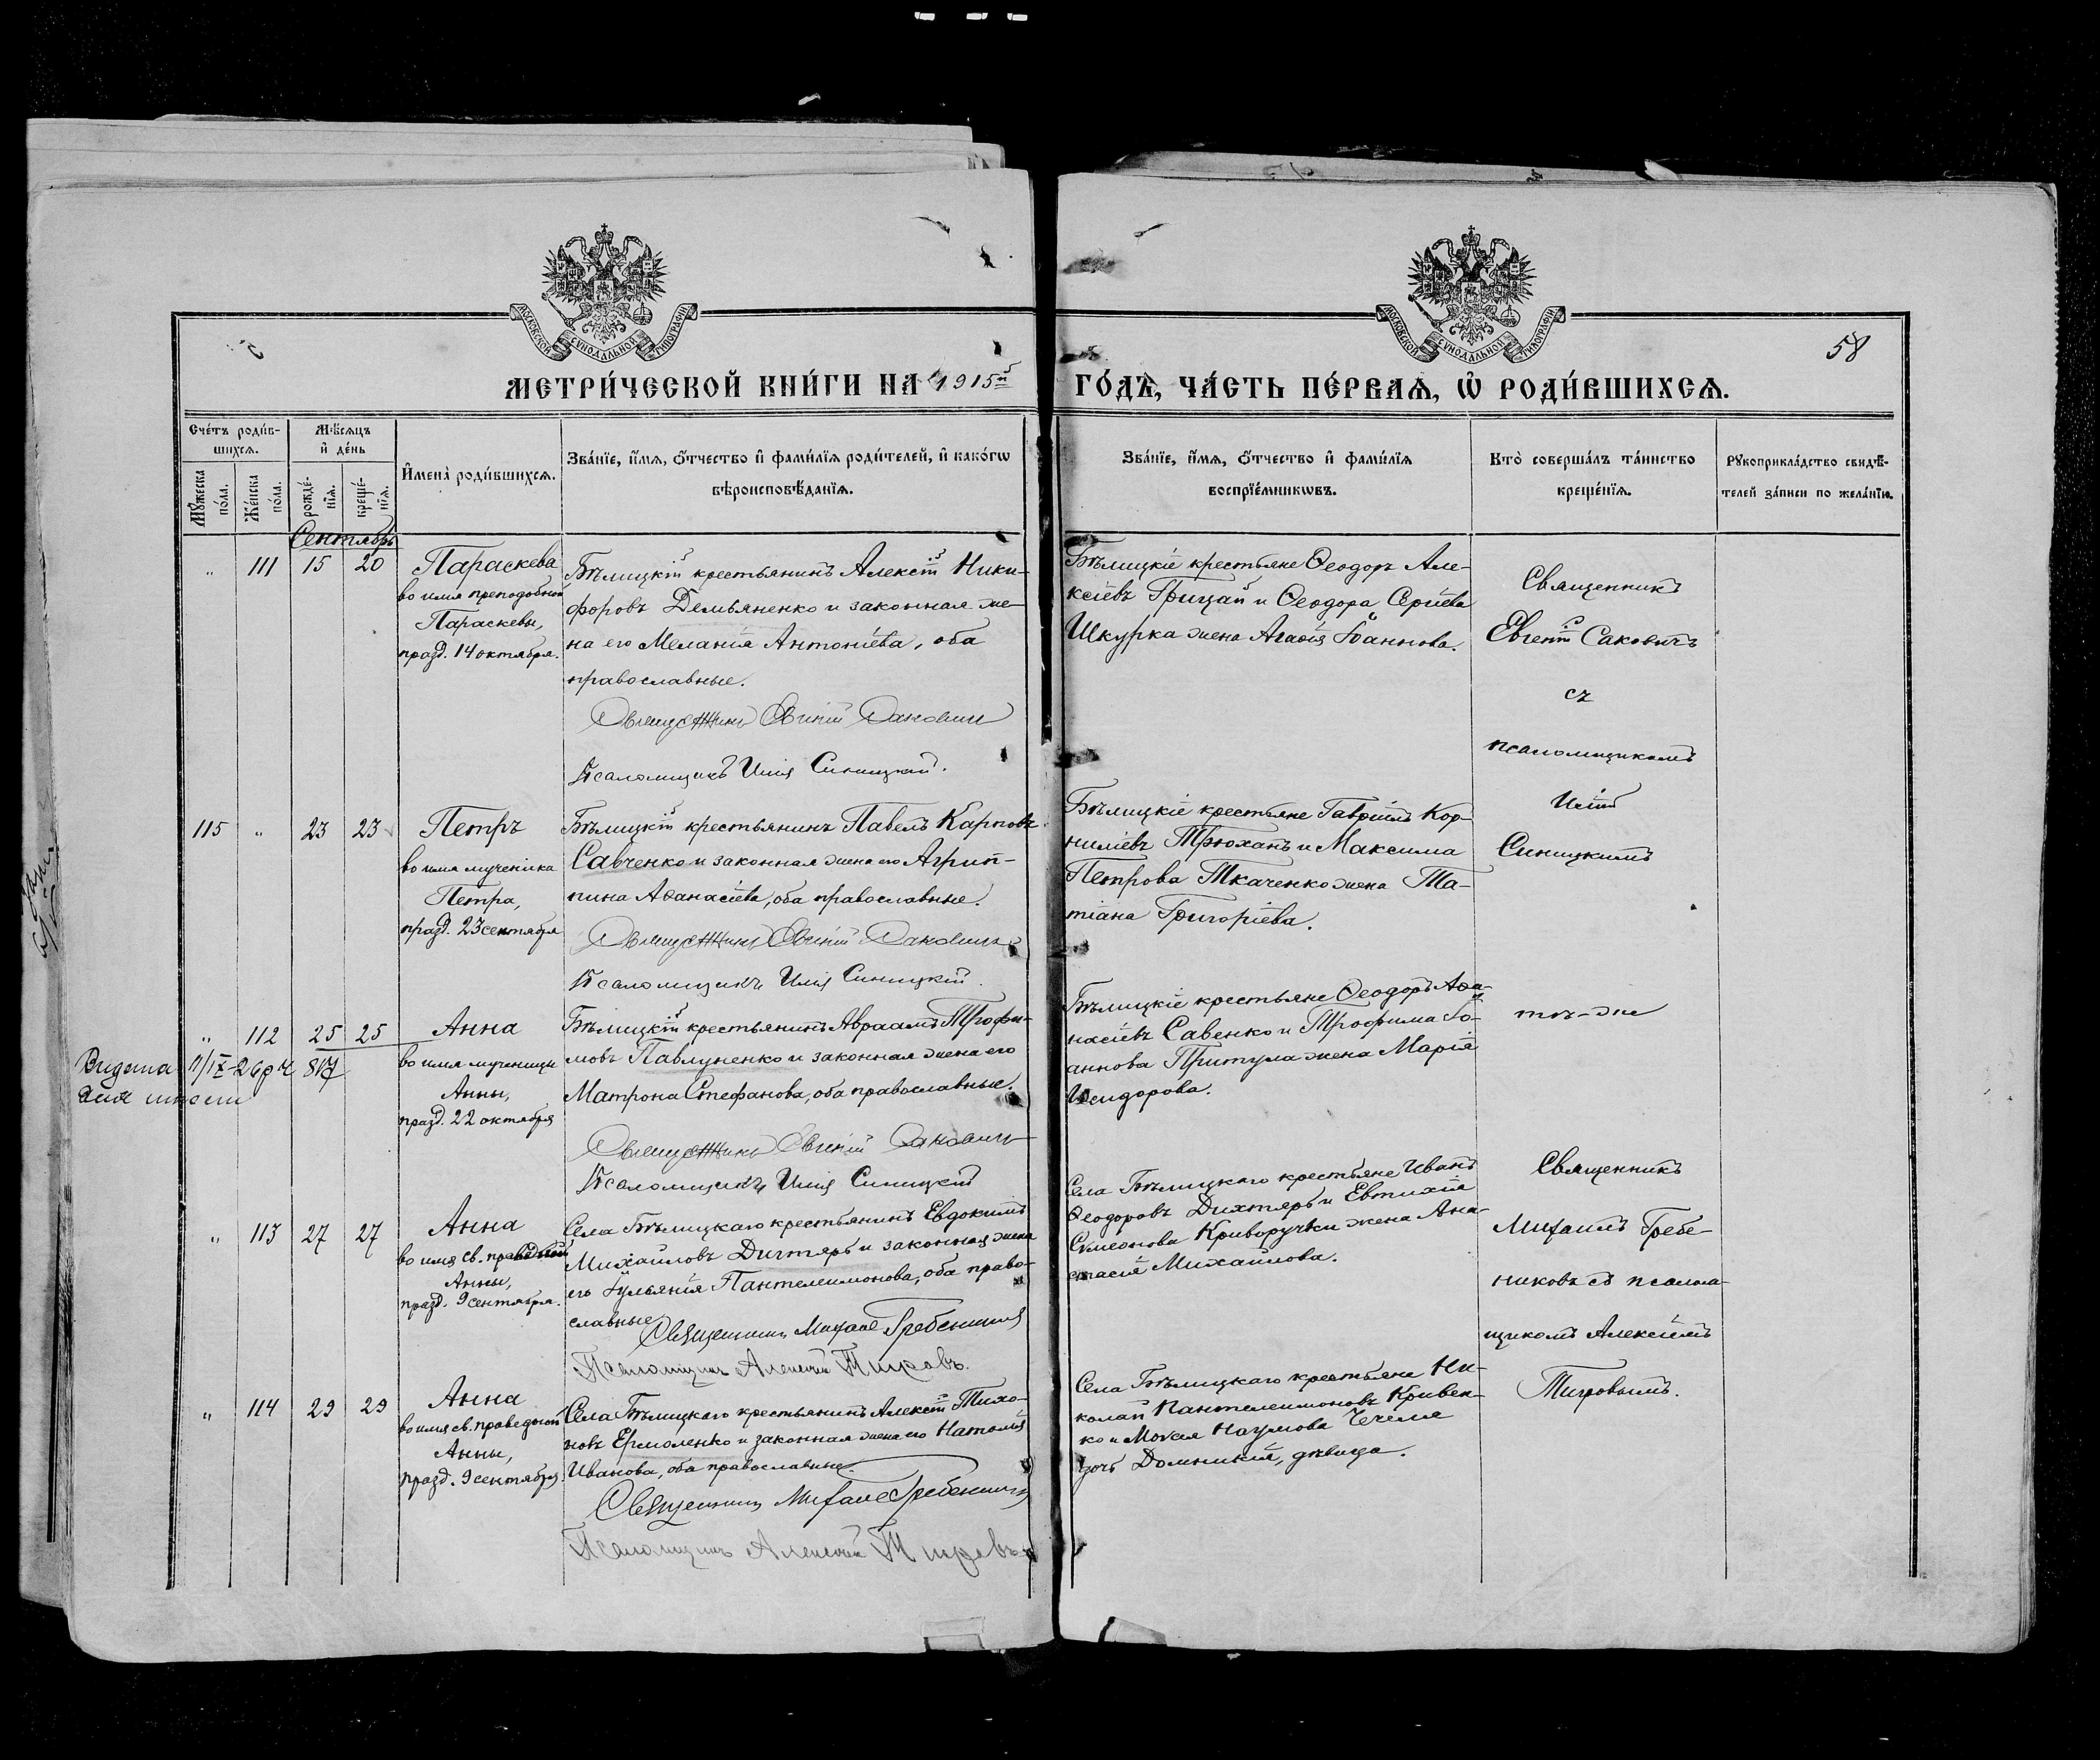 МОСКОВСКОЙ СѴНОДАЛЬНОЙ ТИПОГРАФІИ
МОСКОВСКОЙ СѴНОДАЛЬНОЙ ТИПОГРАФІИ
58
МЕТРИ́ЧЕСКОЙ КНИ́ГИ НА 1915й ГО́ДЪ, ЧА́СТЬ ПЕ́РВАѦ, Ѽ РОДИ́ВШИХСѦ.
Сче́тъ роди́в-
шихсѧ.
Мѣсѧцъ
и҆ де́нь
Мꙋжеска по́ла.
Же́нска по́ла.
рожде́-
нїѧ.
креще́-
нїѧ.
И҆мена̀ роди́вшихсѧ.
Зва́нїе, и҆́мѧ, ѻ҆́тчество и҆ фами́лїѧ роди́телей, и҆ како́гѡ
вѣроисповѣ́данїѧ.
Зва́нїе, и҆́мѧ, ѻ҆́тчество и҆ фами́лїѧ
воспрїе́мникѡвъ.
Кто̀ соверша́лъ та́инство
креще́нїѧ.
Рꙋкоприкла́дство свидѣ́-
телей за́писи по жела́нїю.
Сентябрь
" 111 15 20
Параскева
во имя преподобной
Параскевы,
празд. 14 октября.
Бѣлицкій крестьянинъ Алексій Ники-
форовъ Демьяненко и законная же-
на его Меланія Антоніева, оба
православные.
Священникъ Евгеній Саковичъ
Псаломщикъ Илія Синицкій.
Бѣлицкіе крестьяне Ѳеодоръ Але-
ксіевъ Грицай и Ѳеодора Сергіева
Шкурка жена Агаѳія Іоаннова.
Священникъ
Евгеній Саковичъ
съ
псаломщикомъ
Иліей
Синицкимъ
115 " 23 23
Петръ
во имя мученика
Петра,
празд. 23 сентября
Бѣлицкій крестьянинъ Павелъ Карповъ
Савченко и законная жена его Агрип-
пина Аѳанасіева, оба православные.
Священникъ Евгеній Саковичъ
Псаломщикъ Илія Синицкій.
Бѣлицкіе крестьяне Гавріилъ Кор-
ниліевъ Трюханъ и Максима
Петрова Ткаченко жена Та-
тіана Григоріева.
" 112 25 25
Анна
во имя мученицы
Анны,
празд. 22 октября
Бѣлицкій крестьянинъ Авраамъ Трофи-
мовъ Павлуненко и законная жена его
Матрона Стефанова, оба православные.
Священникъ Евгеній Саковичъ
Псаломщикъ Илія Синицкій
Бѣлицкіе крестьяне Ѳеодоръ Аѳа-
насіевъ Савенко и Трофима Іо-
аннова Притула жена Марія
Исидорова.
тѣ-же
" 113 27 27
Анна
во имя св. праведной
Анны,
празд. 9 сентября.
Села Бѣлицкаго крестьянинъ Евдокимъ
Михайловъ Дихтярь и законная жена
его Іульянія Пантелеимонова, оба право-
славные.
Священникъ Михаилъ Гребениковъ
Псаломщикъ Алексій
Села Бѣлицкаго крестьяне Иванъ
Ѳеодоровъ Дихтярь и Евтихія
Симеонова Криворучки жена Ана-
стасія Михайлова.
Священникъ
Михаилъ Гребе-
никовъ съ псалом-
щикомъ Алексіемъ
" 114 29 29
Анна
во имя св. праведной
Анны,
празд. 9 сентября.
Села Бѣлицкаго крестьянинъ Алексій Тихо-
новъ Ермоленко и законная жена его Наталія
Иванова, оба православные.
Священникъ Михаилъ Гребениковъ
Псаломщикъ Алексій
Села Бѣлицкаго крестьяне Ни-
колай Пантелеимоновъ Кривен-
ко и Мокія Наумова
дочь Домникія, дѣвица.